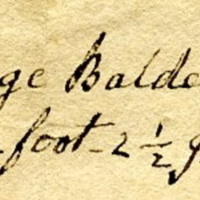 ge Balde
foot - 2 ½ g